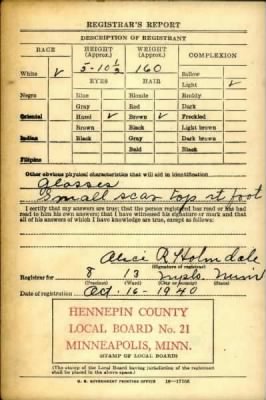 REGISTRAR'S REPORT
DESCRIPTION OF REGISTRANT
RACE HEIGHT (Approx.) WEIGHT (Approx.) COMPLEXION
White ✓ 5-10½ 160 Sallow
EYES HAIR Light ✓
Negro Blue Blonde Ruddy
Gray Red Dark
Oriental Hazel ✓ Brown ✓ Freckled
Brown Black Light brown
Indian Black Gray Dark brown
Bald Black
Filipino
Other obvious physical characteristics that will aid in identification
Glasses
Small scar top rt foot
I certify that my answers are true; that the person registered has read or has had
read to him his own answers; that I have witnessed his signature or mark and that
all of his answers of which I have knowledge are true, except as follows:
Alice R Holmdale
(Signature of registrar)
Registrar for 8 13 Mpls. Minn
(Precinct) (Ward) (City or county) (State)
Date of registration Oct. 16 - 1940
HENNEPIN COUNTY
LOCAL BOARD No. 21
MINNEAPOLIS, MINN.
(STAMP OF LOCAL BOARD)
(The stamp of the Local Board having jurisdiction of the registrant
shall be placed in the above space.)
U. S. GOVERNMENT PRINTING OFFICE